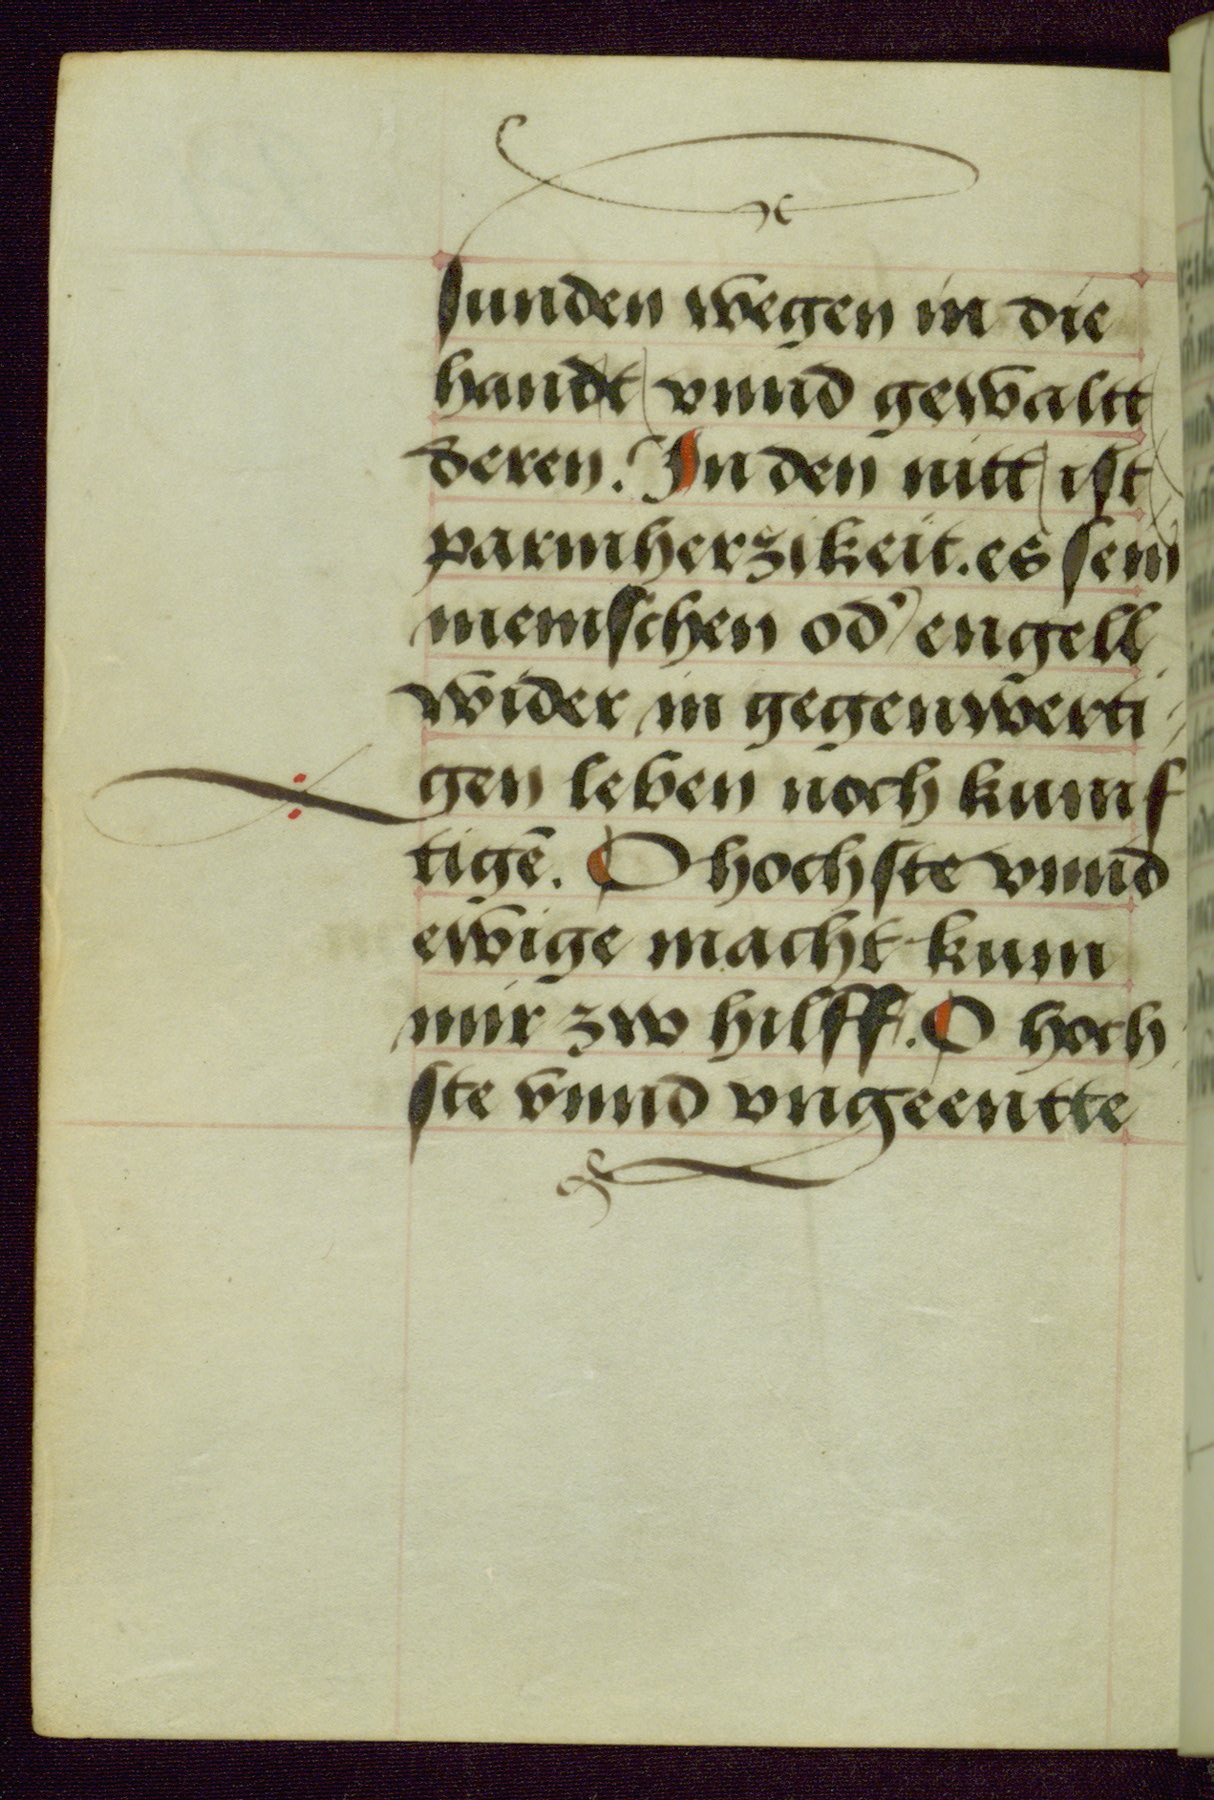 sunden wegen in die
handt vnnd gewaltt
deren. In den nitt ist
parmherzikeit. es sein
mennschen od' engell
wider in gegenwerti
gen leben noch kunnf
tigē. O hochste vnnd
ewige macht kum
mir zw hilff. O hoch
ste vnnd vngeentte